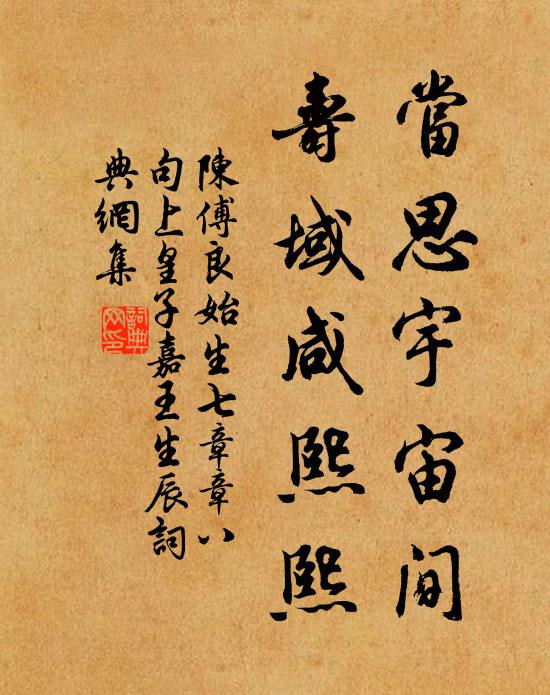 當思宇宙間
壽域咸熙熙
陳傅良始生七章章八
句上皇子嘉王生辰詞
典網集
詞典網印